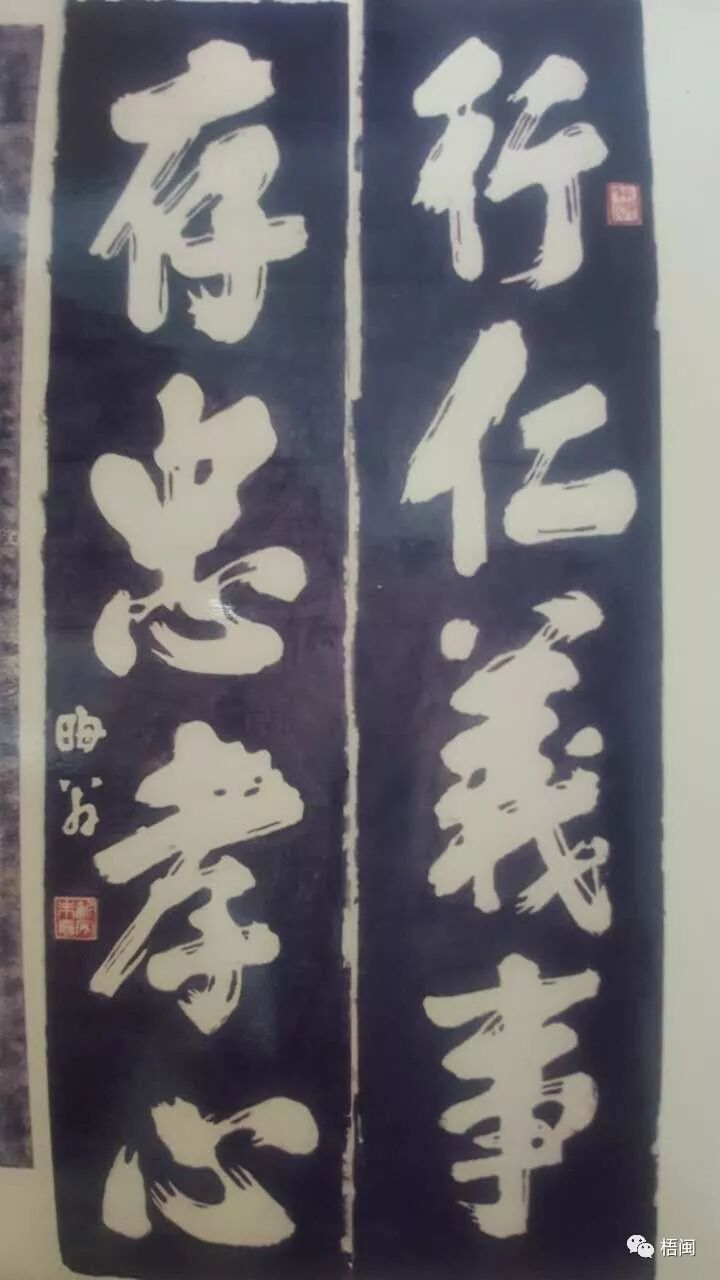 行仁義事
存忠孝心
晦翁
梧闽